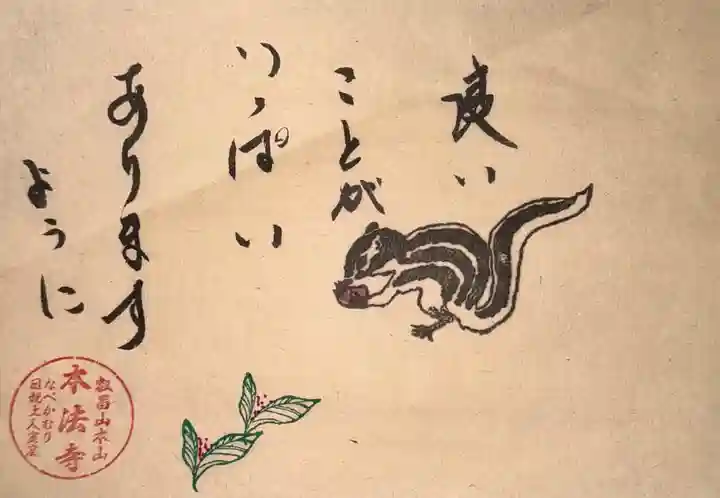 良い
ことが
いっぱい
あります
ように
叡昌山本山
本法寺
なべかむり
日親上人霊窟